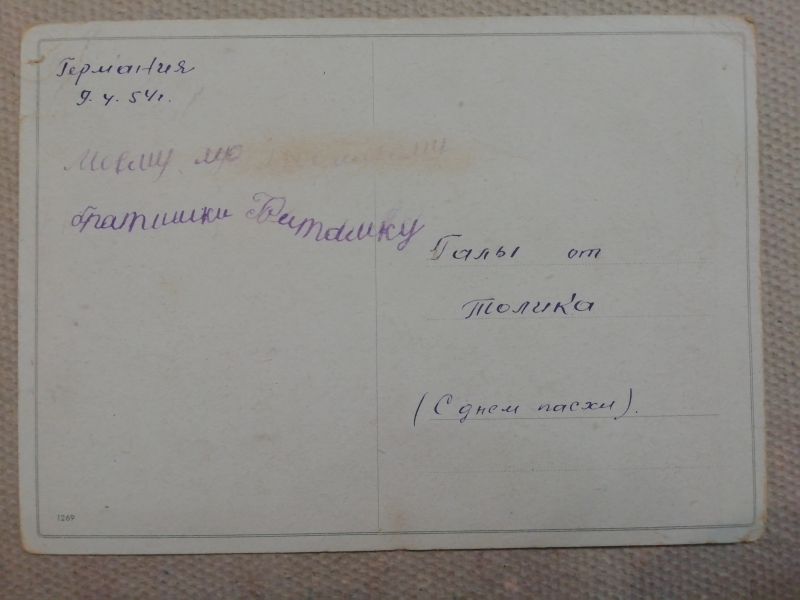 Германия
9. 4. 54г.
Моему
братишки Виталику
Галы от
Толика
(С днем пасхи).
1269